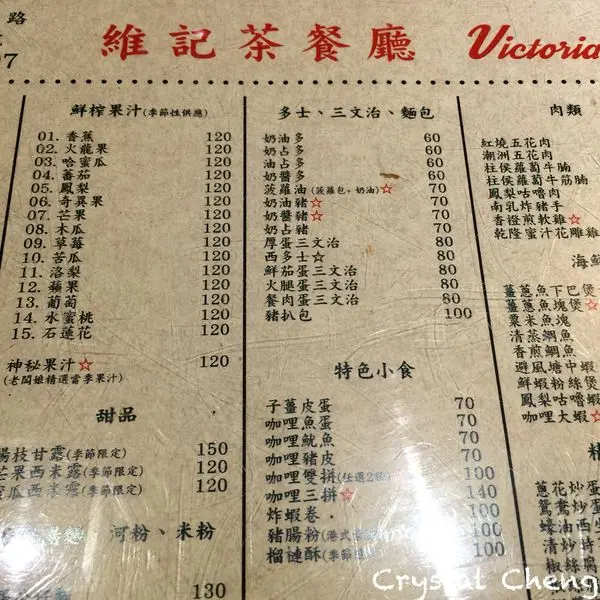 路
07
維記茶餐廳 Victoria
鮮榨果汁(季節性供應)
01. 香蕉 120
02. 火龍果 120
03. 哈蜜瓜 120
04. 蕃茄 120
05. 鳳梨 120
06. 奇異果 120
07. 芒果 120
08. 木瓜 120
09. 草莓 120
10. 苦瓜 120
11. 洛梨 120
12. 蘋果 120
13. 葡萄 120
14. 水蜜桃 120
15. 石蓮花 120
神秘果汁☆ 120
(老闆娘精選當季果汁)
甜品
楊枝甘露(季節限定) 150
芒果西米露(季節限定) 120
蜜瓜西米露(季節限定) 120
河粉、米粉
130
多士、三文治、麵包
奶油多 60
奶占多 60
油占多 60
奶醬多 60
菠蘿油(菠蘿包+奶油)☆ 70
奶油豬☆ 70
奶醬豬☆ 70
奶占豬 70
厚蛋三文治 80
西多士☆ 80
鮮茄蛋三文治 80
火腿蛋三文治 80
餐肉蛋三文治 80
豬扒包 100
特色小食
子薑皮蛋 70
咖哩魚蛋 70
咖哩魷魚 70
咖哩豬皮 70
咖哩雙拼(任選2種) 100
咖哩三拼☆ 140
炸蝦卷 100
豬腸粉(港式 100
榴槤酥(季節 100
肉類
紅燒五花肉
潮洲五花肉
柱侯蘿蔔牛腩
柱侯蘿蔔牛筋腩
鳳梨咕嚕肉
南乳炸豬手
香橙煎軟雞☆
乾隆蜜汁花雕雞
海鮮
薑蔥魚下巴煲
薑蔥魚塊煲☆
粟米魚塊
清蒸鯛魚
香煎鯛魚
避風塘中蝦
鮮蝦粉絲煲
鳳梨咕嚕蝦
咖哩大蝦☆
精
蔥花炒蛋
鴛鴦炒蛋
蠔油西生
清炒時
椒絲腐
Crystal Cheng